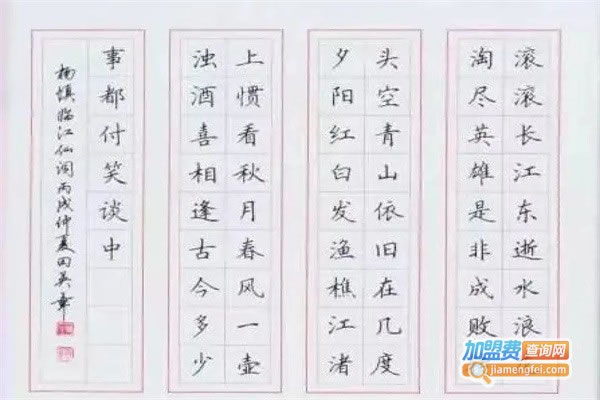 滚滚长江东逝水浪
淘尽英雄是非成败
头空青山依旧在几度
夕阳红白发渔樵江渚
上惯看秋月春风一壶
浊酒喜相逢古今多少
事都付笑谈中
杨慎临江仙词丙戌仲夏田英章
加盟费查询网
jiamengfei.com